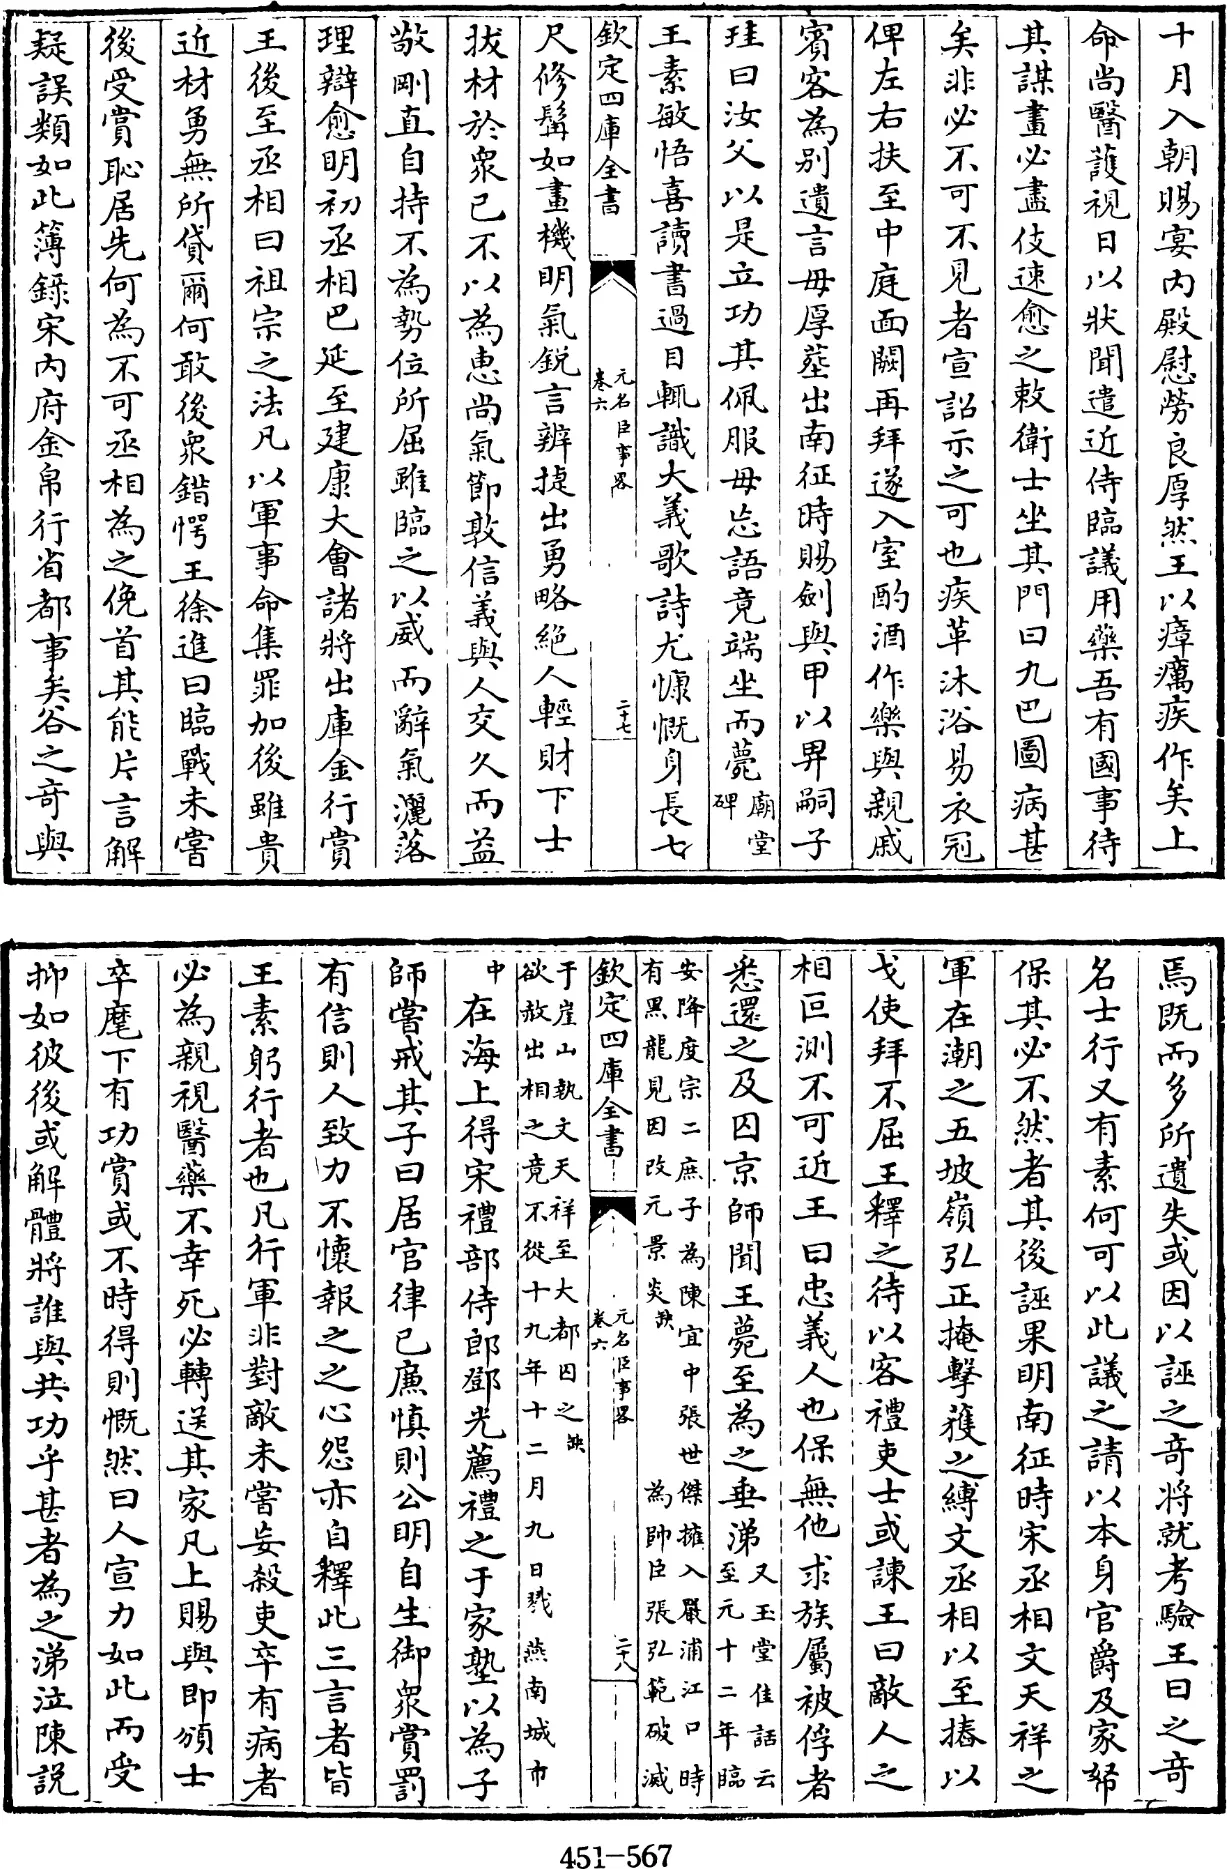 十月入朝賜宴内殿慰勞良厚然王以瘴癘疾作矣上
命尚醫護視日以狀聞遣近侍臨議用藥吾有國事待
其謀畫必盡伎速愈之敕衛士坐其門曰九巴圖病甚
矣非必不可不見者宣詔示之可也疾革沐浴易衣冠
俾左右扶至中庭面闕再拜遂入室酌酒作樂與親戚
賓客為别遺言毋厚塟出南征時賜劍與甲以畀嗣子
珪曰汝父以是立功其佩服毋忘語竟端坐而薨廟堂碑
王素敏悟喜讀書過目輒識大義歌詩尤慷慨身長七
欽定四庫全書 元名臣事畧 卷六 二十七
尺修髯如畫機明氣鋭言辨捷出勇略絶人輕財下士
拔材於衆已不以為恵尚氣節敦信義與人交久而益
敬剛直自持不為勢位所屈雖臨之以威而辭氣灑落
理辯愈明初丞相巴延至建康大會諸將出庫金行賞
王後至丞相曰祖宗之法凡以軍事命集罪加後雖貴
近材勇無所貸爾何敢後衆錯愕王徐進曰臨戰未嘗
後受賞恥居先何為不可丞相為之俛首其能片言解
疑誤類如此簿錄宋内府金帛行省都事矣谷之竒與
焉既而多所遺失或因以誣之竒將就考驗王曰之竒
名士行又有素何可以此議之請以本身官爵及家帑
保其必不然者其後誣果明南征時宋丞相文天祥之
軍在潮之五坡嶺弘正掩擊獲之縳文丞相以至摏以
戈使拜不屈王釋之待以客禮吏士或諫王曰敵人之
相叵測不可近王曰忠義人也保無他求族屬被俘者
悉還之及囚京師聞王薨至為之垂涕又玉堂佳話云至元十二年臨
安降度宗二庶子為陳宜中張世傑擁入嚴浦江口時
有黑龍見因改元景炎缺 為帥臣張弘範破滅
欽定四庫全書 元名臣事畧 卷六 二十八
于崖山執文天祥至大都囚之缺
欲赦出相之竟不從十九年十二月九日戮 燕南城市
中 在海上得宋禮部侍郎鄧光薦禮之于家塾以為子
師嘗戒其子曰居官律已㢘慎則公明自生御衆賞罰
有信則人致力不懷報之之心怨亦自釋此三言者皆
王素躬行者也凡行軍非對敵未嘗妄殺吏卒有病者
必為親視醫藥不幸死必轉送其家凡上賜與即頒士
卒麾下有功賞或不時得則慨然曰人宣力如此而受
抑如彼後或解體將誰與共功乎甚者為之涕泣陳説
451-567